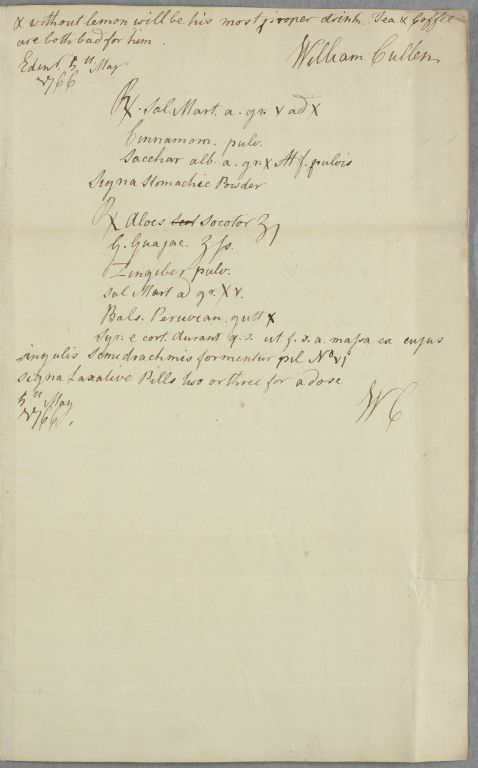 & without lemon will be his most proper drink. Tea & Coffee
are both bad for him.
William Cullen
Edinr. 5th May
1766
℞. Sal. Mart. a. gr. v ad x
Cinnamom. pulv.
Sacchar alb. a. gr. x M f. pulvis
Signa Stomachic Powder
℞ Aloes Socotor ʒj
G. Guajac. ʒfs.
Zingiber pulv.
Sal Mart a gr. xv.
Bals. Peruvian. gutt x
Syr. e cort. Aurant q. s. ut f. s. a. massa ex cujus
singulis Semidrachmis formentur pil. No vj
Signa Laxative Pills two or three for a dose
5th May
1766.
WC